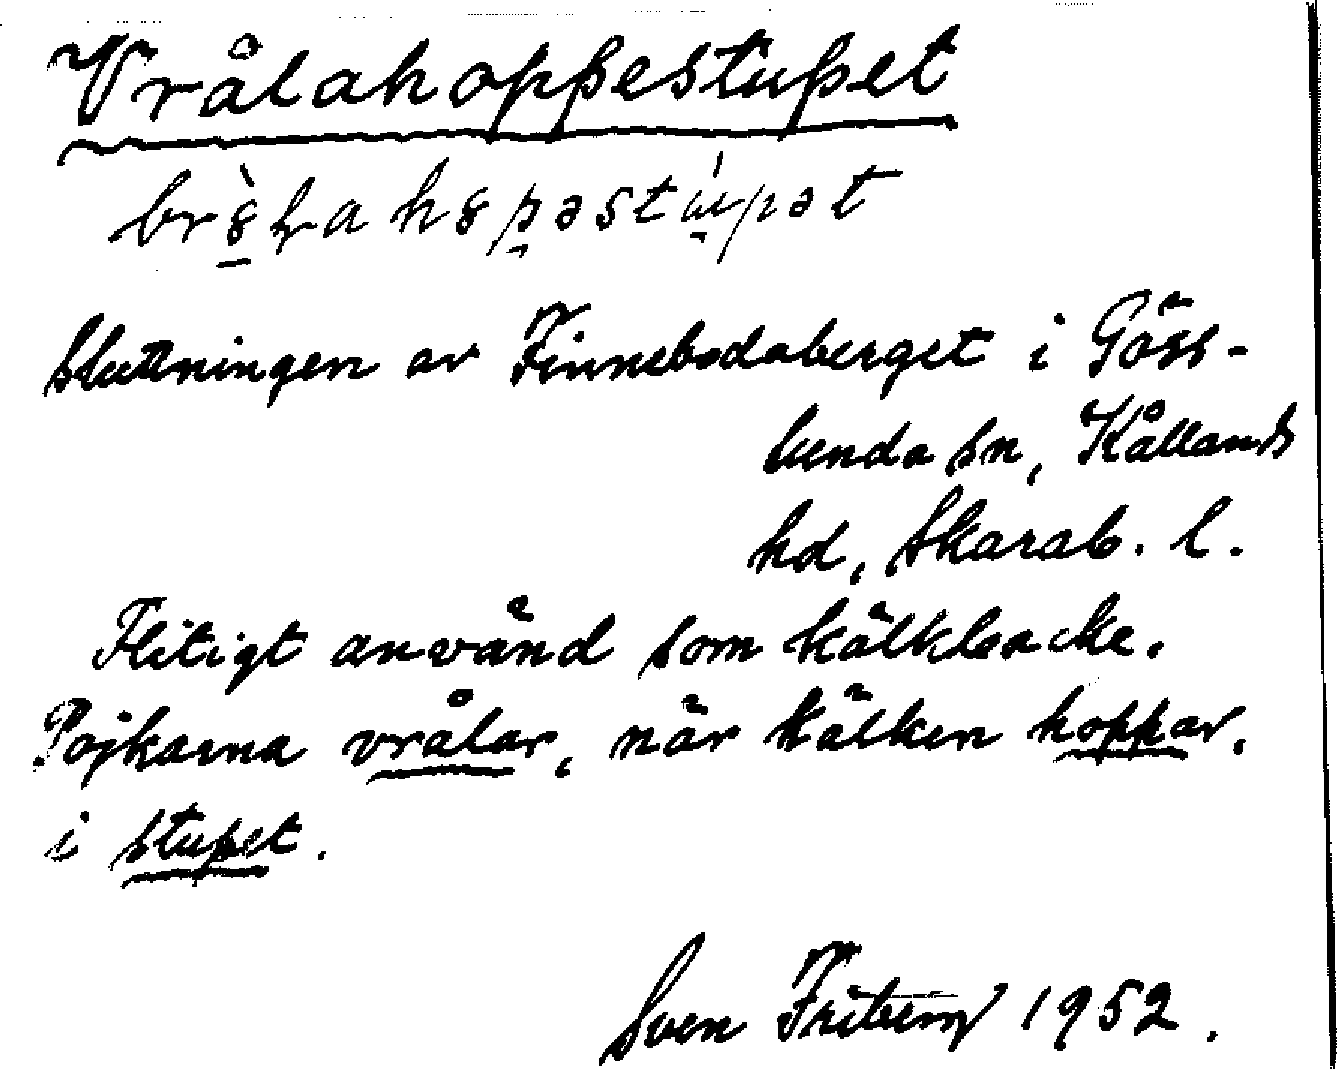 Vrålahoppestupet
Sluttningen av Finnebodaberget i Göss-
lunda sn, Kållands
hd, Skarab. l.
Flitigt använd som kälkbacke.
Pojkarna vrålar, när kälken hoppar,
i stupet.
Sven Friberg 1952.